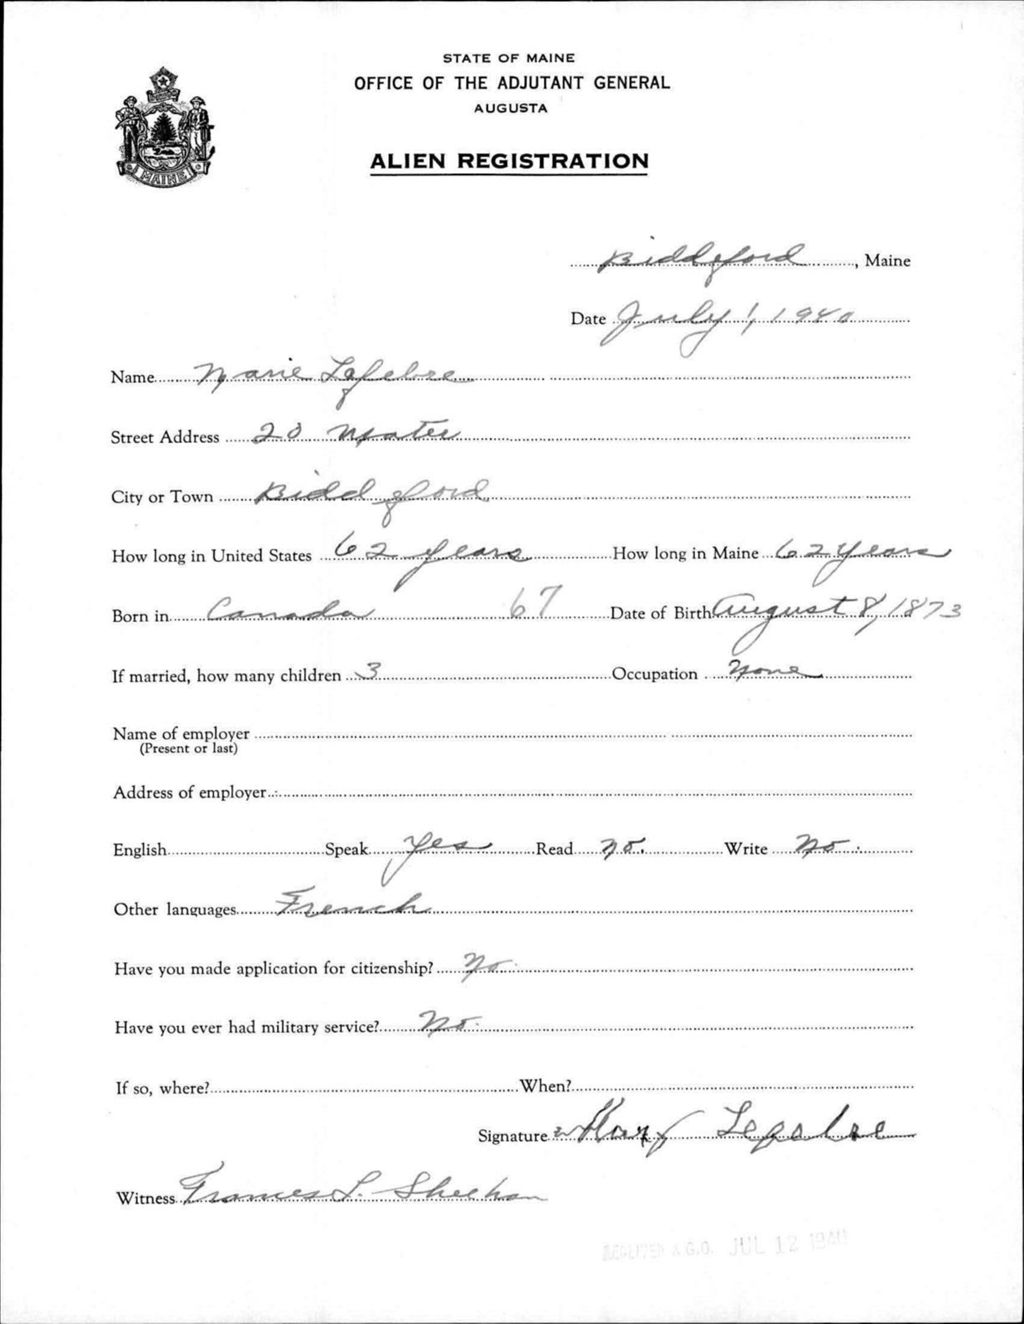 STATE OF MAINE
OFFICE OF THE ADJUTANT GENERAL
AUGUSTA
MAINE
ALIEN REGISTRATION
Biddeford, Maine
Date July 1, 1940
Name Marie Lefebre
Street Address 20
City or Town Biddeford
How long in United States 62 years How long in Maine 62 years
Born in Canada 67 Date of Birth August 8, 1873
If married, how many children 3 Occupation None
Name of employer
(Present or last)
Address of employer
English Speak Yes Read no. Write No.
Other languages French
Have you made application for citizenship? No.
Have you ever had military service? No.
If so, where? When?
Signature Mary
Witness Frances L. Sheehan
A.G.O. JUL 12 1940